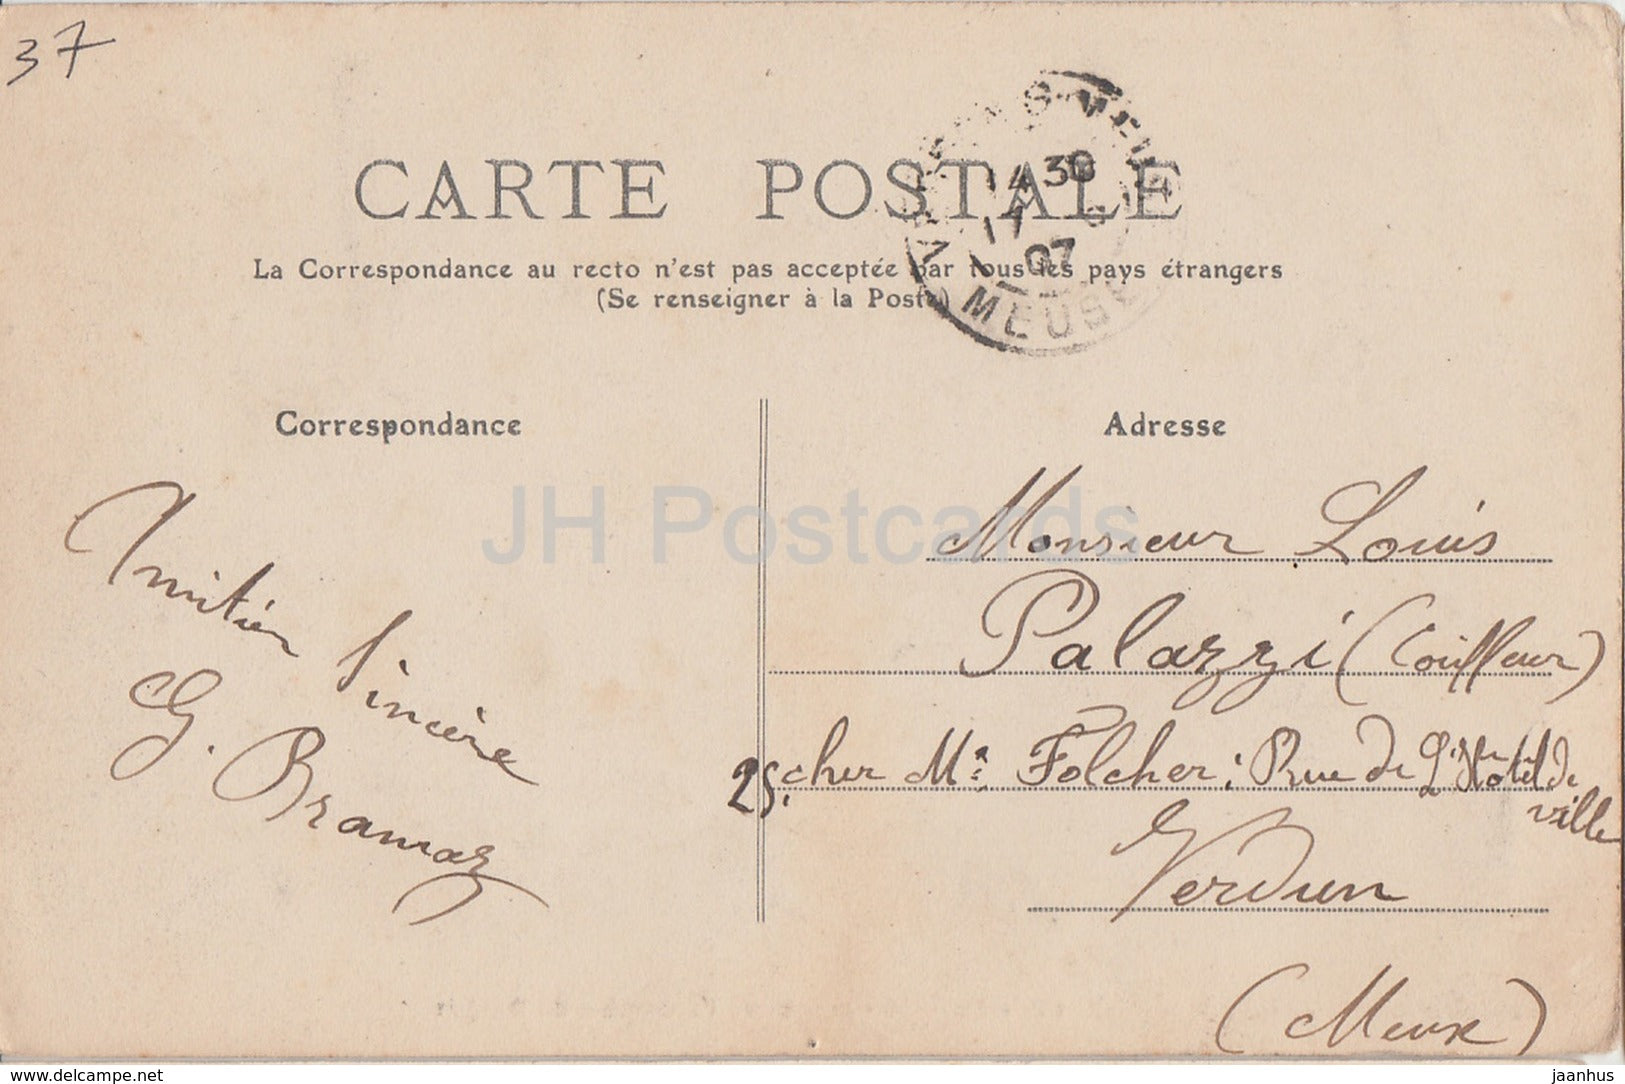 37
CARTE POSTALE
La Correspondance au recto n'est pas acceptée par tous les pays étrangers
(Se renseigner à la Poste)
14 30
17
07
MEUSE
Correspondance
Adresse
JH Postcards
Amitiés
Sincère
G. Bramaz
Monsieur Louis
Palazzi (Coiffeur)
25. chez Mr Folcher; Rue de L'Hôtel de
ville
Verdun
(Meuse)
delcampe.net
jaanhus